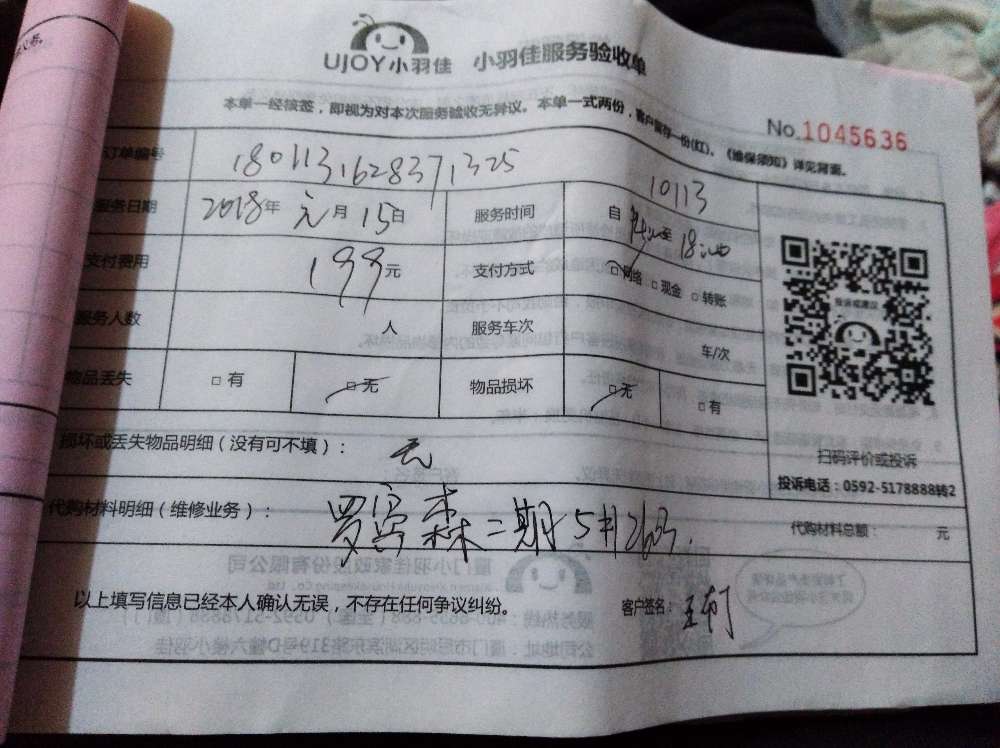 UJOY小羽佳 小羽佳服务验收单
本单一经核签，即视为对本次服务验收无异议。本单一式两份，客户留存一份(红)、《维保须知》详见背面。
No.1045636
订单编号 1801131628371325
10113
服务日期 2018年 元月 15日 服务时间 自 至 18:00
支付费用 199元 支付方式 □网络 □现金 □转账
服务人数 人 服务车次 车/次
物品丢失 □有 □无 物品损坏 □无 □有
投诉或建议
扫码评价或投诉
投诉电话：0592-5178888转2
损坏或丢失物品明细（没有可不填）： 无
代购材料明细（维修业务）： 罗宾森二期5# 代购材料总额： 元
以上填写信息已经本人确认无误，不存在任何争议纠纷。 客户签名：